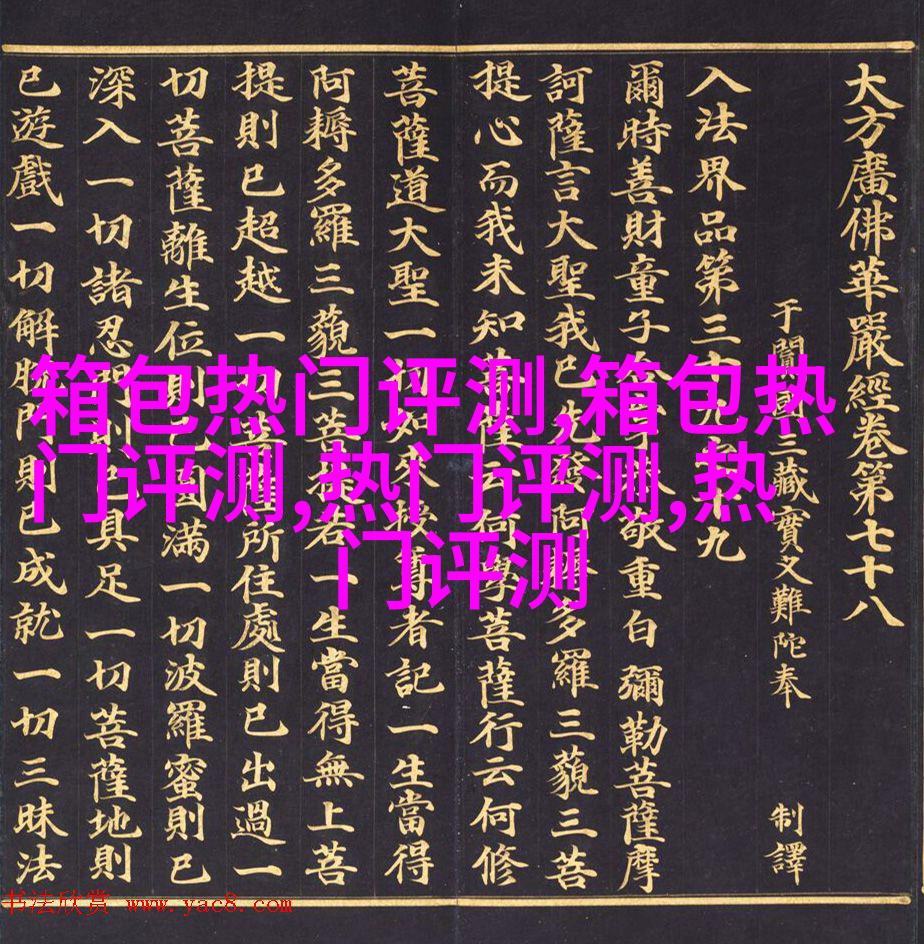 大方廣佛華嚴經卷第七十八
于闐國三藏實叉難陀奉 制譯
入法界品第三十九之十九
爾時善財童子合掌恭敬重白彌勒菩薩摩
訶薩言大聖我已先發阿耨多羅三藐三菩
提心而我未知菩薩云何學菩薩行云何修
菩薩道大聖一切如來授尊者記一生當得
阿耨多羅三藐三菩提若一生當得無上菩
提則已超越一切菩薩所住處則已出過一
切菩薩離生位則已圓滿一切波羅蜜則已
深入一切諸忍門則已具足一切菩薩地則
已遊戲一切解脫門則已成就一切三昧法
箱包热门评测,箱包热
门评测,热门评测,热
门评测
书法欣赏 www.yac8.com